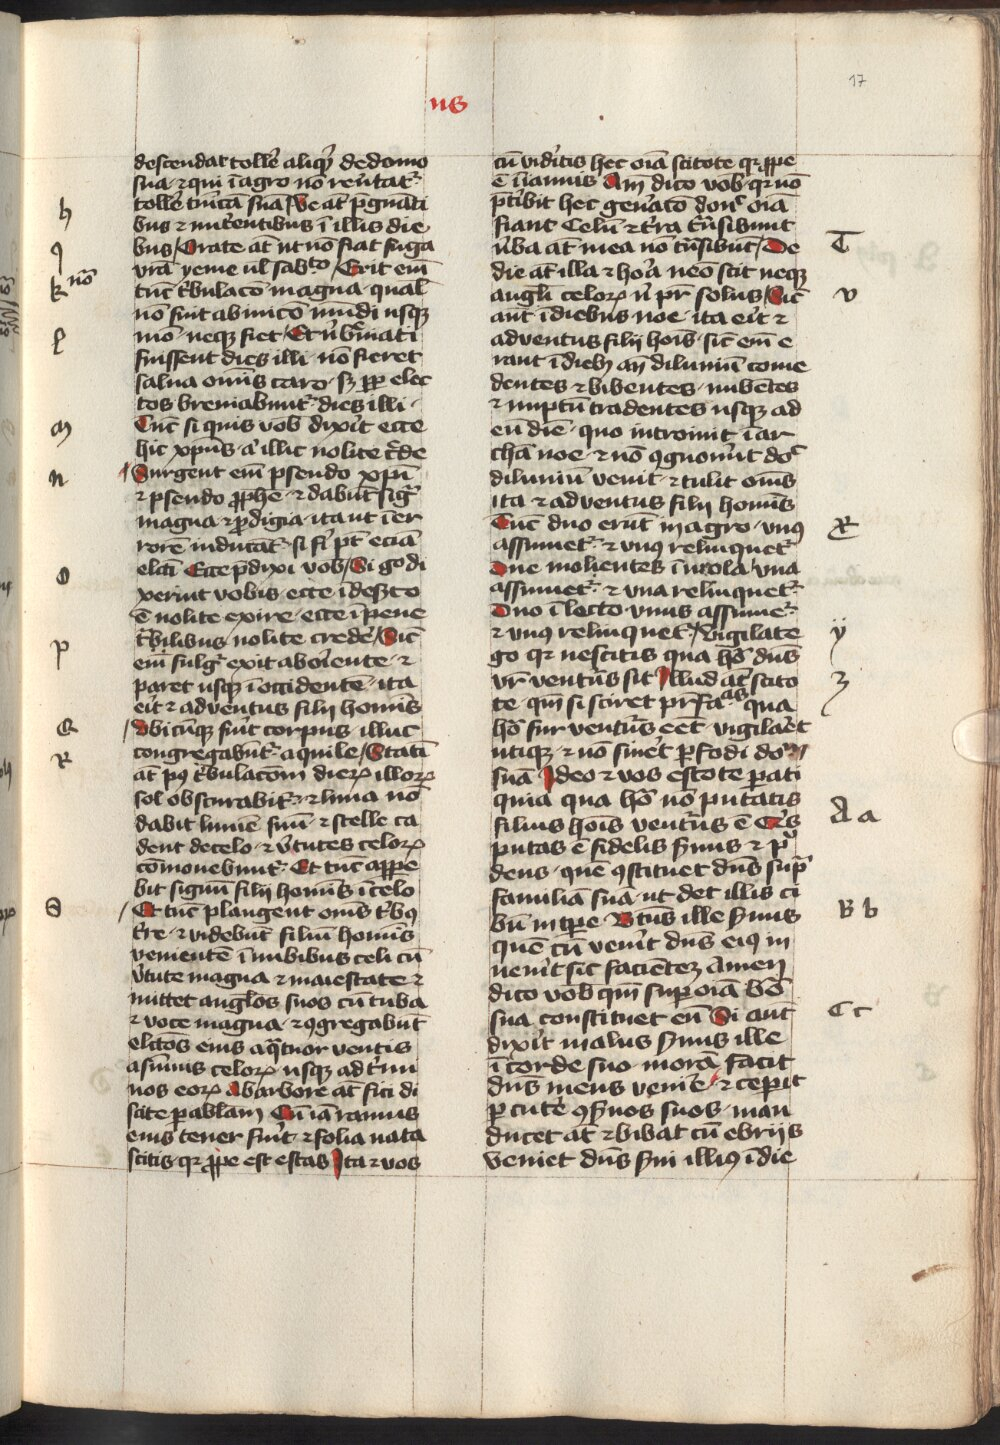 17
us
descendat tolle᷒ aliq̄ꝫ de domo
sua ⁊ qui ī agro nō reu᷒tat᷒
tolle᷒ tu᷒icā suā Ve at᷒ p̄gnāti
h
bus ⁊ nut᷒entibus ī illis die
bus Orate at᷒ ut nō fiat fuga
q
vr̄a yeme ul᷒ sabᵗᵒ Erit em̄
k nō
tūc t᷒bulacō magna qual᷒
nō fuit ab inicō mūdi usqꝫ
mō neqꝫ fiet Et n᷒ b᷒uiati
l
fuissent dies illi nō fieret
salua omīs caro sꝫ ꝓꝑ elec
tos breuiabunt᷒ dies illi
Tūc si quis vob̄ dix᷒it ecce
m
hic xp̄us a᷒ illic nolite c᷒de
Surgent em̄ pseudo xp̄i
n
⁊ pseudo ꝓphe ⁊ dabūt sig᷒
magna ⁊ ꝓdigia ita ut ī er
rorē inducāt᷒ si fi᷒ pt᷒ eciā
elc̄i Ecce p̄dixi vob̄ Si g᷒ di
o
xerint vobis ecce ī des᷒to
ē nolite exire ecce ī pene
t᷒bilibus nolite crede᷒ Sic᷒
p
em̄ fulg᷒ exit ab oi᷒ente ⁊
paret usqꝫ ī occidentē ita
eit᷒ ⁊ adventus filij homīs
Vbicūqꝫ fu᷒it corpus illuc
Q
congregabūt᷒ aquile Statī
R
at᷒ pꝰ t᷒bulacōem dieꝝ illoꝝ
sol obscurabit᷒ ⁊ luna nō
dabit lumē suū ⁊ stelle ca
dent de celo ⁊ v᷒tutes celoꝝ
cōmouebunt᷒ Et tūc appe
bit signū filij homīs ī celo
Et tūc plangent omīs t᷒bꝰ
S
t᷒re ⁊ videbūt filiū homīs
venientē ī nubibus celi cū
v᷒tute magna ⁊ maiestate ⁊
mittet anglōs suos cū tuba
⁊ voce magna ⁊ ꝯgregabūt
elc̄os eius a q᷒tuor ventis
a sūmis celoꝝ usqꝫ ad t᷒mi
nos eoꝝ Ab arbore at᷒ fici di
scite ꝑablam Cū iā ramus
eius tener fu᷒it ⁊ folia nata
scitis qꝛ ꝓpe est estas Ita ⁊ vos
cū vid᷒itis hec oīa scitote qꝛ ꝓpe
ē ī ianuis Am̄ dico vob̄ qꝛ nō
p̄t᷒ibit hec gen᷒atō donᶜ oīa
fiant Celū ⁊ t᷒ra t᷒nsibunt
v᷒ba at᷒ mea nō t᷒nsibūt De
T
die at᷒ illa ⁊ ho᷒a nēo scit neqꝫ
angl̄i celoꝝ n᷒ pr̄ solus Sic᷒
v
aut᷒ ī diebus noe ita eit᷒ ⁊
adventus filij hoīs sic᷒ em̄ e
rant ī diebꝫ an᷒ diluuiū come
dentes ⁊ bibentes nubētes
⁊ nuptū tradentes usqꝫ ad
eū diē quo introiuit ī ar
chā noe ⁊ nō ꝯgnou᷒ut doᶜ
diluuiū venit ⁊ tulit omīs
ita ⁊ adventus filij homīs
Tūc duo erūt in agro vnꝰ
X
assumet᷒ ⁊ vnꝰ relinquet᷒
Due molentes ī mola vna
assumet᷒ ⁊ vna relinquet᷒
Duo ī lecto vnus assume᷒
⁊ vnꝰ relinquet᷒ Vigilate
y
go qꝛ nescitis qua hō dūs
vr̄ ventu᷒s sit Illud at᷒ scito
z
te qm̄ si sciret pr̄ fa᷒ᵃˢ qua
hō fur ventu᷒s eēt vigila᷒et
utiqꝫ ⁊ nō sin᷒et ꝑfodi domū
suā Ideo ⁊ vos estote ꝑati
quia qua hō nō putatis
filius hoīs ventu᷒s ē Q᷒s
A a
putas ē fidelis s᷒uus ⁊ p᷒u
dens quē ꝯstituet dūs sup᷒
familiā suā ut det illis ci
bū in tꝑe Btūs ille s᷒uus
B b
quē cū ven᷒it dūs eiꝰ in
uen᷒it sic facientē Amen
dico vob̄ qm̄ suꝑ oīa bō
sua constituet eū Si aut᷒
C c
dix᷒it malus s᷒uus ille
ī corde suo morā facit
dūs meus veni᷒e ⁊ ceperit
ꝑcute᷒ ꝯs᷒uos suos man
ducet at᷒ ⁊ bibat cū ebrijs
veniet dūs s᷒ui illiꝰ ī die